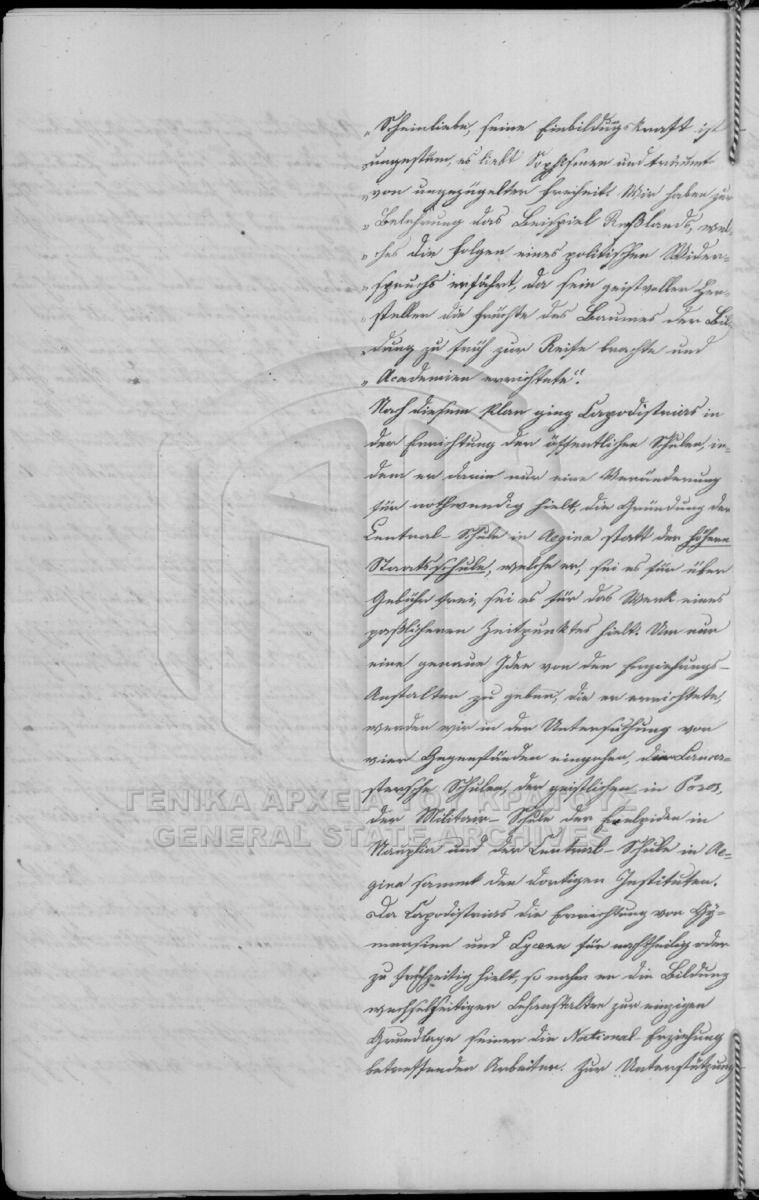 „Scheinliebe, seine Einbildungskraft ist
„ungestüm, es liebt Sophismen und träumt
„von ungezügelter Freiheit. Wir haben zur
„Belehrung das Beispiel Rußlands, wel-
„ches die Folgen eines politischen Wider-
„spruchs erfährt, da sein geistvoller Her-
„steller die Früchte des Baumes der Bil-
„dung zu früh zur Reife brachte und
„Academien errichtete“.
Nach diesem Plan ging Capodistrias in
der Errichtung der öffentlichen Schulen, in-
dem er darin nur eine Veränderung
für nothwendig hielt, die Gründung der
Central-Schule in Aegina statt der höhern
Staatsschule, welche er, sei es für über
Gebühr frei, sei es für das Werk eines
paßlicheren Zeitpunktes hielt. Um nur
eine genaue Idee von den Erziehungs-
Anstalten zu geben, die er errichtete,
werden wir in der Untersuchung von
vier Gegenständen eingehen, der Lanca-
sterschen Schulen, der geistlichen in Poros,
der Militair-Schule der Evelpiden in
Nauplia und der Central-Schule in Ae-
gina sammt den dortigen Instituten.
Da Capodistrias die Errichtung von Gy-
mnasien und Lyceen für nachtheilig oder
zu frühzeitig hielt, so nahm er die Bildung
wechselseitiger Lehranstalten zur einzigen
Grundlage seiner die National-Erziehung
betreffenden Arbeiten. Zur Unterstützung
ΓΕΝΙΚΑ ΑΡΧΕΙΑ ΤΟΥ ΚΡΑΤΟΥΣ
GENERAL STATE ARCHIVES